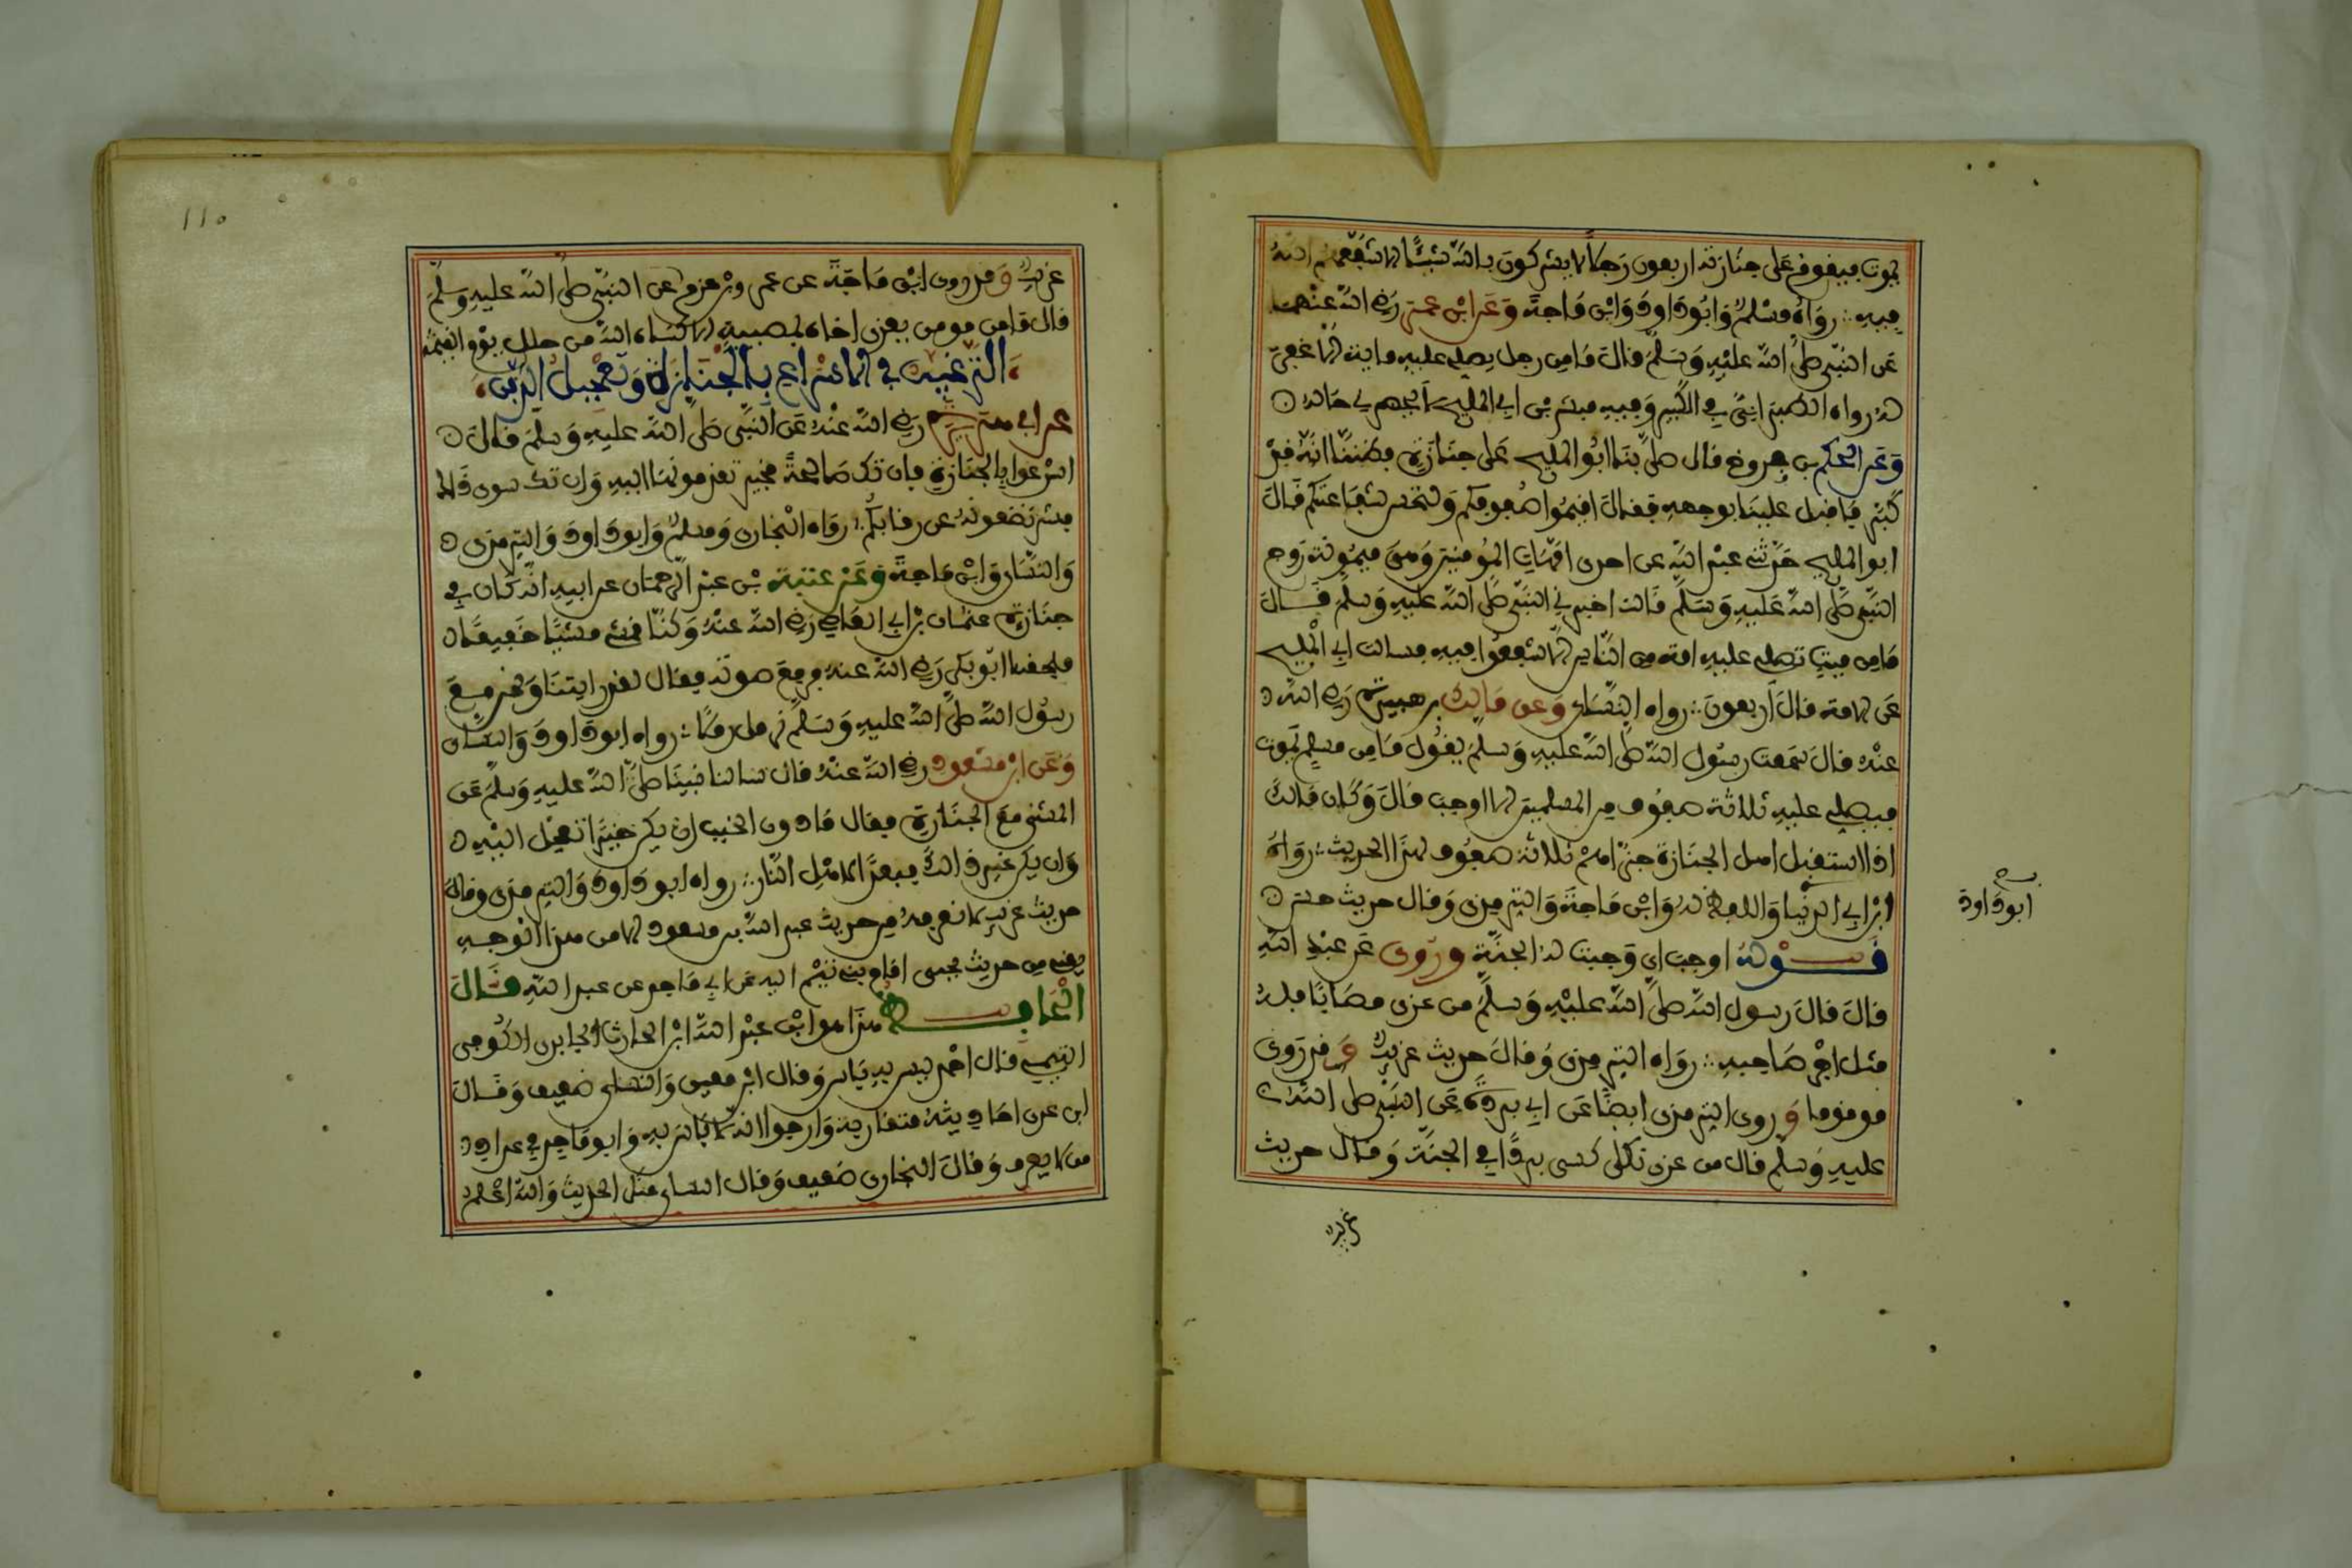 يموت فيقوم على جنازته اربعون رجلا لا يشركون بالله شيئا الا شفعهم الله
فيه رواه مسلم وابو داود وابن ماجة وعن ابن عمر رضي الله عنهما
عن النبي صلى الله عليه وسلم قال ما من رجل يصلي عليه ماية الا غفر
له رواه الطبراني في الكبير وفيه مبشر بن ابي المليح لا يحضرني حاله
وعن الحكم بن فروخ قال صلى بنا ابو المليح على جنازة فظننا انه قد
كبر فاقبل علينا بوجهه فقال اقيموا صفوفكم ولتحسن شفاعتكم قال
ابو المليح حدثني عبد الله عن احدى امهات المومنين وهي ميمونة زوج
النبي صلى الله عليه وسلم قالت اخبرني النبي صلى الله عليه وسلم قال
ما من ميت تصلي عليه امة من الناس الا شفعوا فيه فسالت ابي المليح
عن الامة قال اربعون رواه النساي وعن مالك بن هبيرة رضي الله
عنه قال سمعت رسول الله صلى الله عليه وسلم يقول ما من مسلم يموت
فيصلي عليه ثلاثة صفوف من المسلمين الا اوجب قال وكان مالك
اذا استقبل اهل الجنازة جزاهم ثلاثة صفوف لهذا الحديث رواه
ابو داود
ابن ابي الدنيا واللفظ له وابن ماجة والترمذي وقال حديث حسن
قوله اوجب اي وجبت له الجنة وروي عن عبد الله
قال قال رسول الله صلى الله عليه وسلم من عزى مصابا فله
مثل اجر صاحبه رواه الترمذي وقال حديث غريب وقد روي
موقوفا وروى الترمذي ايضا عن ابي بردة عن النبي صلى الله
عليه وسلم قال من عزى ثكلى كسي بردا في الجنة وقال حديث
غريب
110
غريب وقد روى ابن ماجة عن عمرو بن حزم عن النبي صلى الله عليه وسلم
قال ما من مومن يعزي اخاه بمصيبة الا كساه الله من حلل يوم القيمة
الترغيب في الاسراع بالجنازة وتعجيل الدفن
عن ابي هريرة رضي الله عنه عن النبي صلى الله عليه وسلم قال
اسرعوا بالجنازة فان تك صالحة فخير تقدمونها اليه وان تك سوى ذالك
فشر تضعونه عن رقابكم رواه البخاري ومسلم وابو داود والترمذي
والنساي وابن ماجة وعن عيينة بن عبد الرحمان عن ابيه انه كان في
جنازة عثمان بن ابي العاصي رضي الله عنه وكنا نمشي مشيا خفيفا
فلحقنا ابو بكر رضي الله عنه فرفع صوته فقال لقد رايتنا ونحن مع
رسول الله صلى الله عليه وسلم نرمل رملا رواه ابو داود والنساي
وعن ابن مسعود رضي الله عنه قال سالنا نبينا صلى الله عليه وسلم عن
المشي مع الجنازة فقال ما دون الخبب ان يكن خيرا تعجل اليه
وان يكن غير ذالك فبعدا لاهل النار رواه ابو داود والترمذي وقال
حديث غريب لا نعرفه من حديث عبد الله بن مسعود الا من هذا الوجه
يعني من حديث يحيى امام بني تيم الله عن ابي ماجد عن عبد الله قال
الحافظ هذا هو ابن عبد الله ابن الحارث الجابري الكوفي
التيمي قال احمد ليس به باس وقال ابن معين والنساي ضعيف وقال
ابن عدي احاديثه متقاربة وارجوا انه لا باس به وابو ماجد في عداد
من لا يعرف وقال البخاري ضعيف وقال النساي منكر الحديث والله اعلم